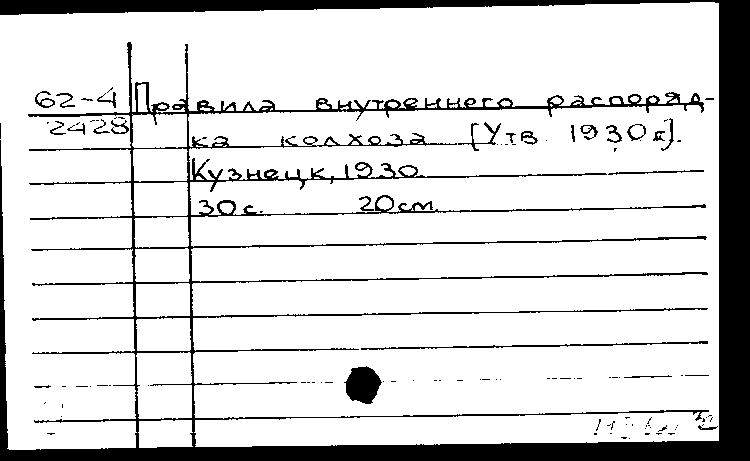 62-4 Правила внутреннего распоряд-
2428 ка колхоза [Утв. 1930 г].
Кузнецк, 1930.
30 с. 20 см.